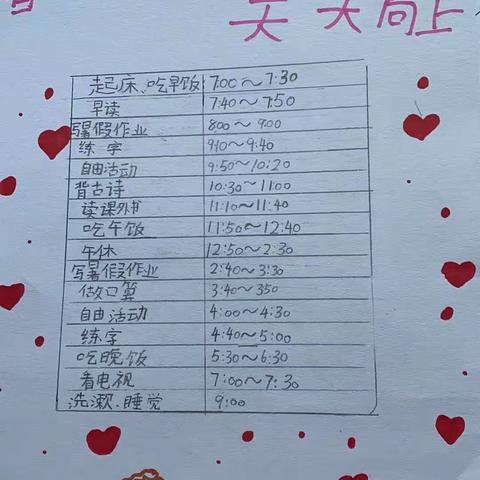 天天向上
起床、吃早饭 7:00～7:30
早读 7:40～7:50
写暑假作业 8:00～9:00
练字 9:10～9:40
自由活动 9:50～10:20
背古诗 10:30～11:00
读课外书 11:10～11:40
吃午饭 11:50～12:40
午休 12:50～2:30
写暑假作业 2:40～3:30
做口算 3:40～3:50
自由活动 4:00～4:30
练字 4:40～5:00
吃晚饭 5:30～6:30
看电视 7:00～7:30
洗漱、睡觉 9:00